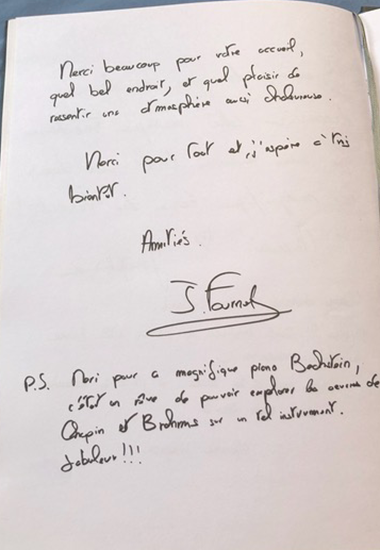 Merci beaucoup pour votre accueil,
quel bel endroit, et quel plaisir de
ressentir une atmosphère aussi chaleureuse.
Merci pour tout et j'espère à très
bientôt.
Amitiés.
J. Fournel
P.S. Merci pour ce magnifique piano Bechstein,
c'était un rêve de pouvoir explorer les œuvres de
Chopin et Brahms sur un tel instrument.
fabuleux !!!